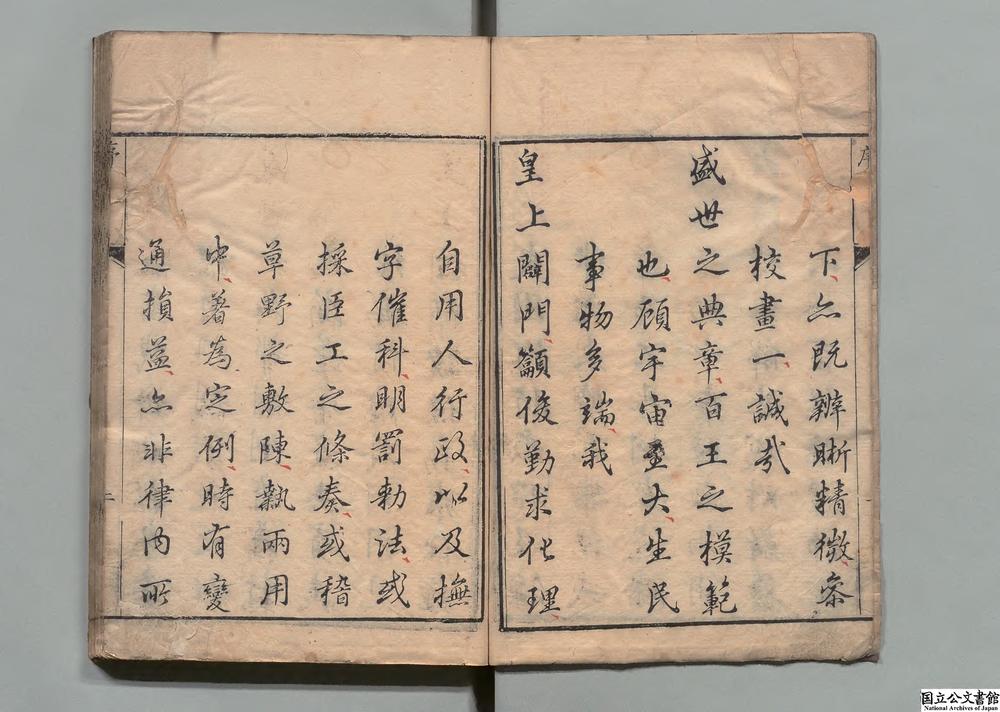 下亦既辨晰精微叅
校畫一誠哉
盛世之典章百王之模範
也顧宇宙至大生民
事物多端我
皇上闢門籲俊勤求化理
自用人行政以及撫
字催科明罰勅法或
採臣工之條奏或稽
草野之敷陳執兩用
中著為定例時有變
通損益亦非律內所
序
国立公文書館
National Archives of Japan